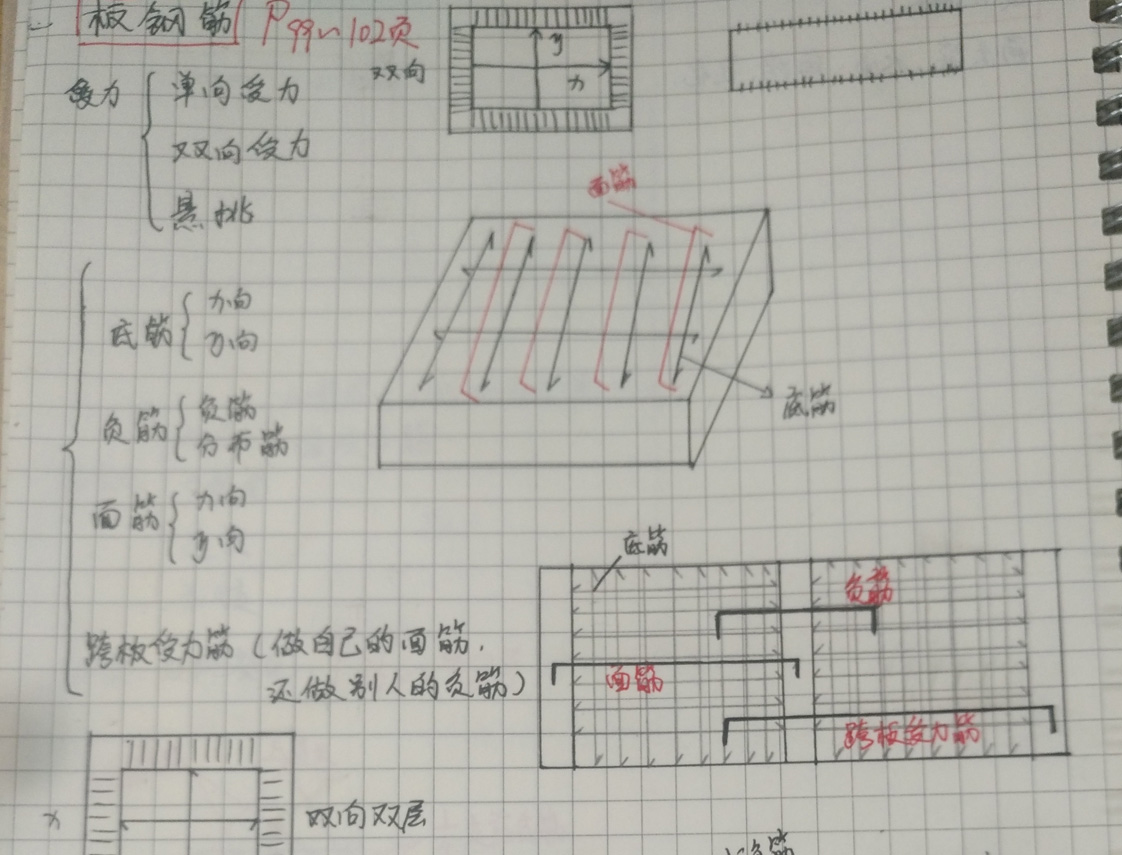 板钢筋 P99~102页
双向
y
x
受力
单向受力
双向受力
悬挑
面筋
底筋
x向
y向
底筋
负筋
负筋
分布筋
面筋
x向
y向
底筋
负筋
跨板受力筋（做自己的面筋，
还做别人的负筋）
面筋
跨板受力筋
x
双向双层